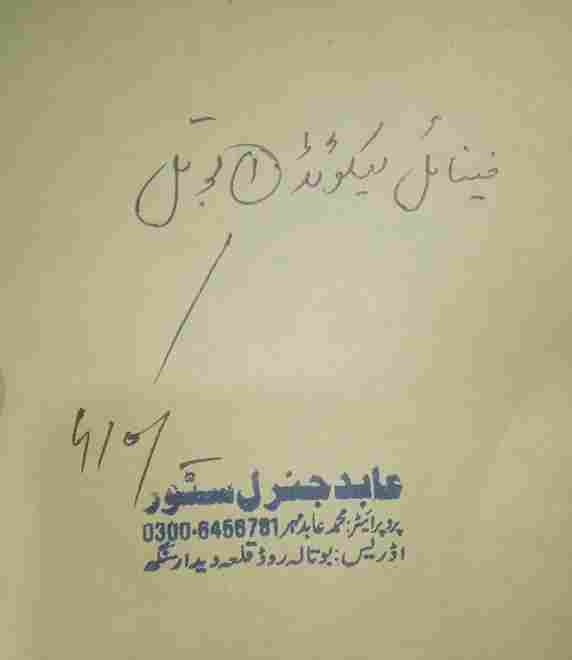 فینائل لیکوئڈ ① بوتل
عابد جنرل سٹور
پروپرائیٹر: محمد عابد مہر 0300-6456781
اڈریس: بوتالہ روڈ قلعہ دیدار سنگھ